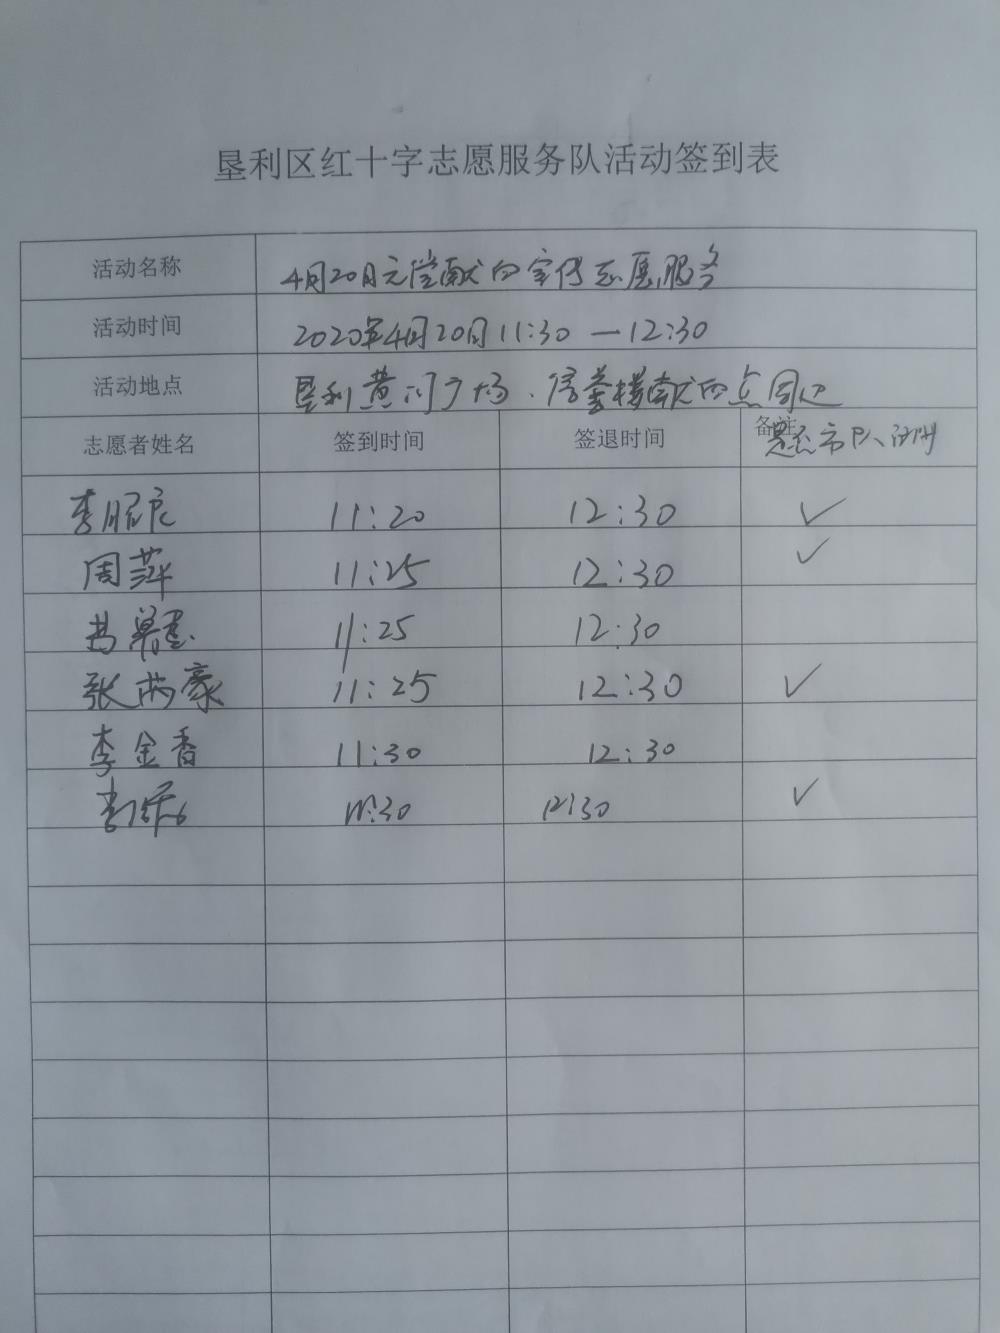 垦利区红十字志愿服务队活动签到表
活动名称 4月20日无偿献血宣传志愿服务
活动时间 2020年4月20日11:30—12:30
活动地点 垦利黄河广场、信誉楼献血点周边
志愿者姓名 签到时间 签退时间 备注 是否市队
11:20 12:30 ✓
周萍 11:25 12:30 ✓
11:25 12:30
张两豪 11:25 12:30 ✓
李金香 11:30 12:30
11:30 12:30 ✓